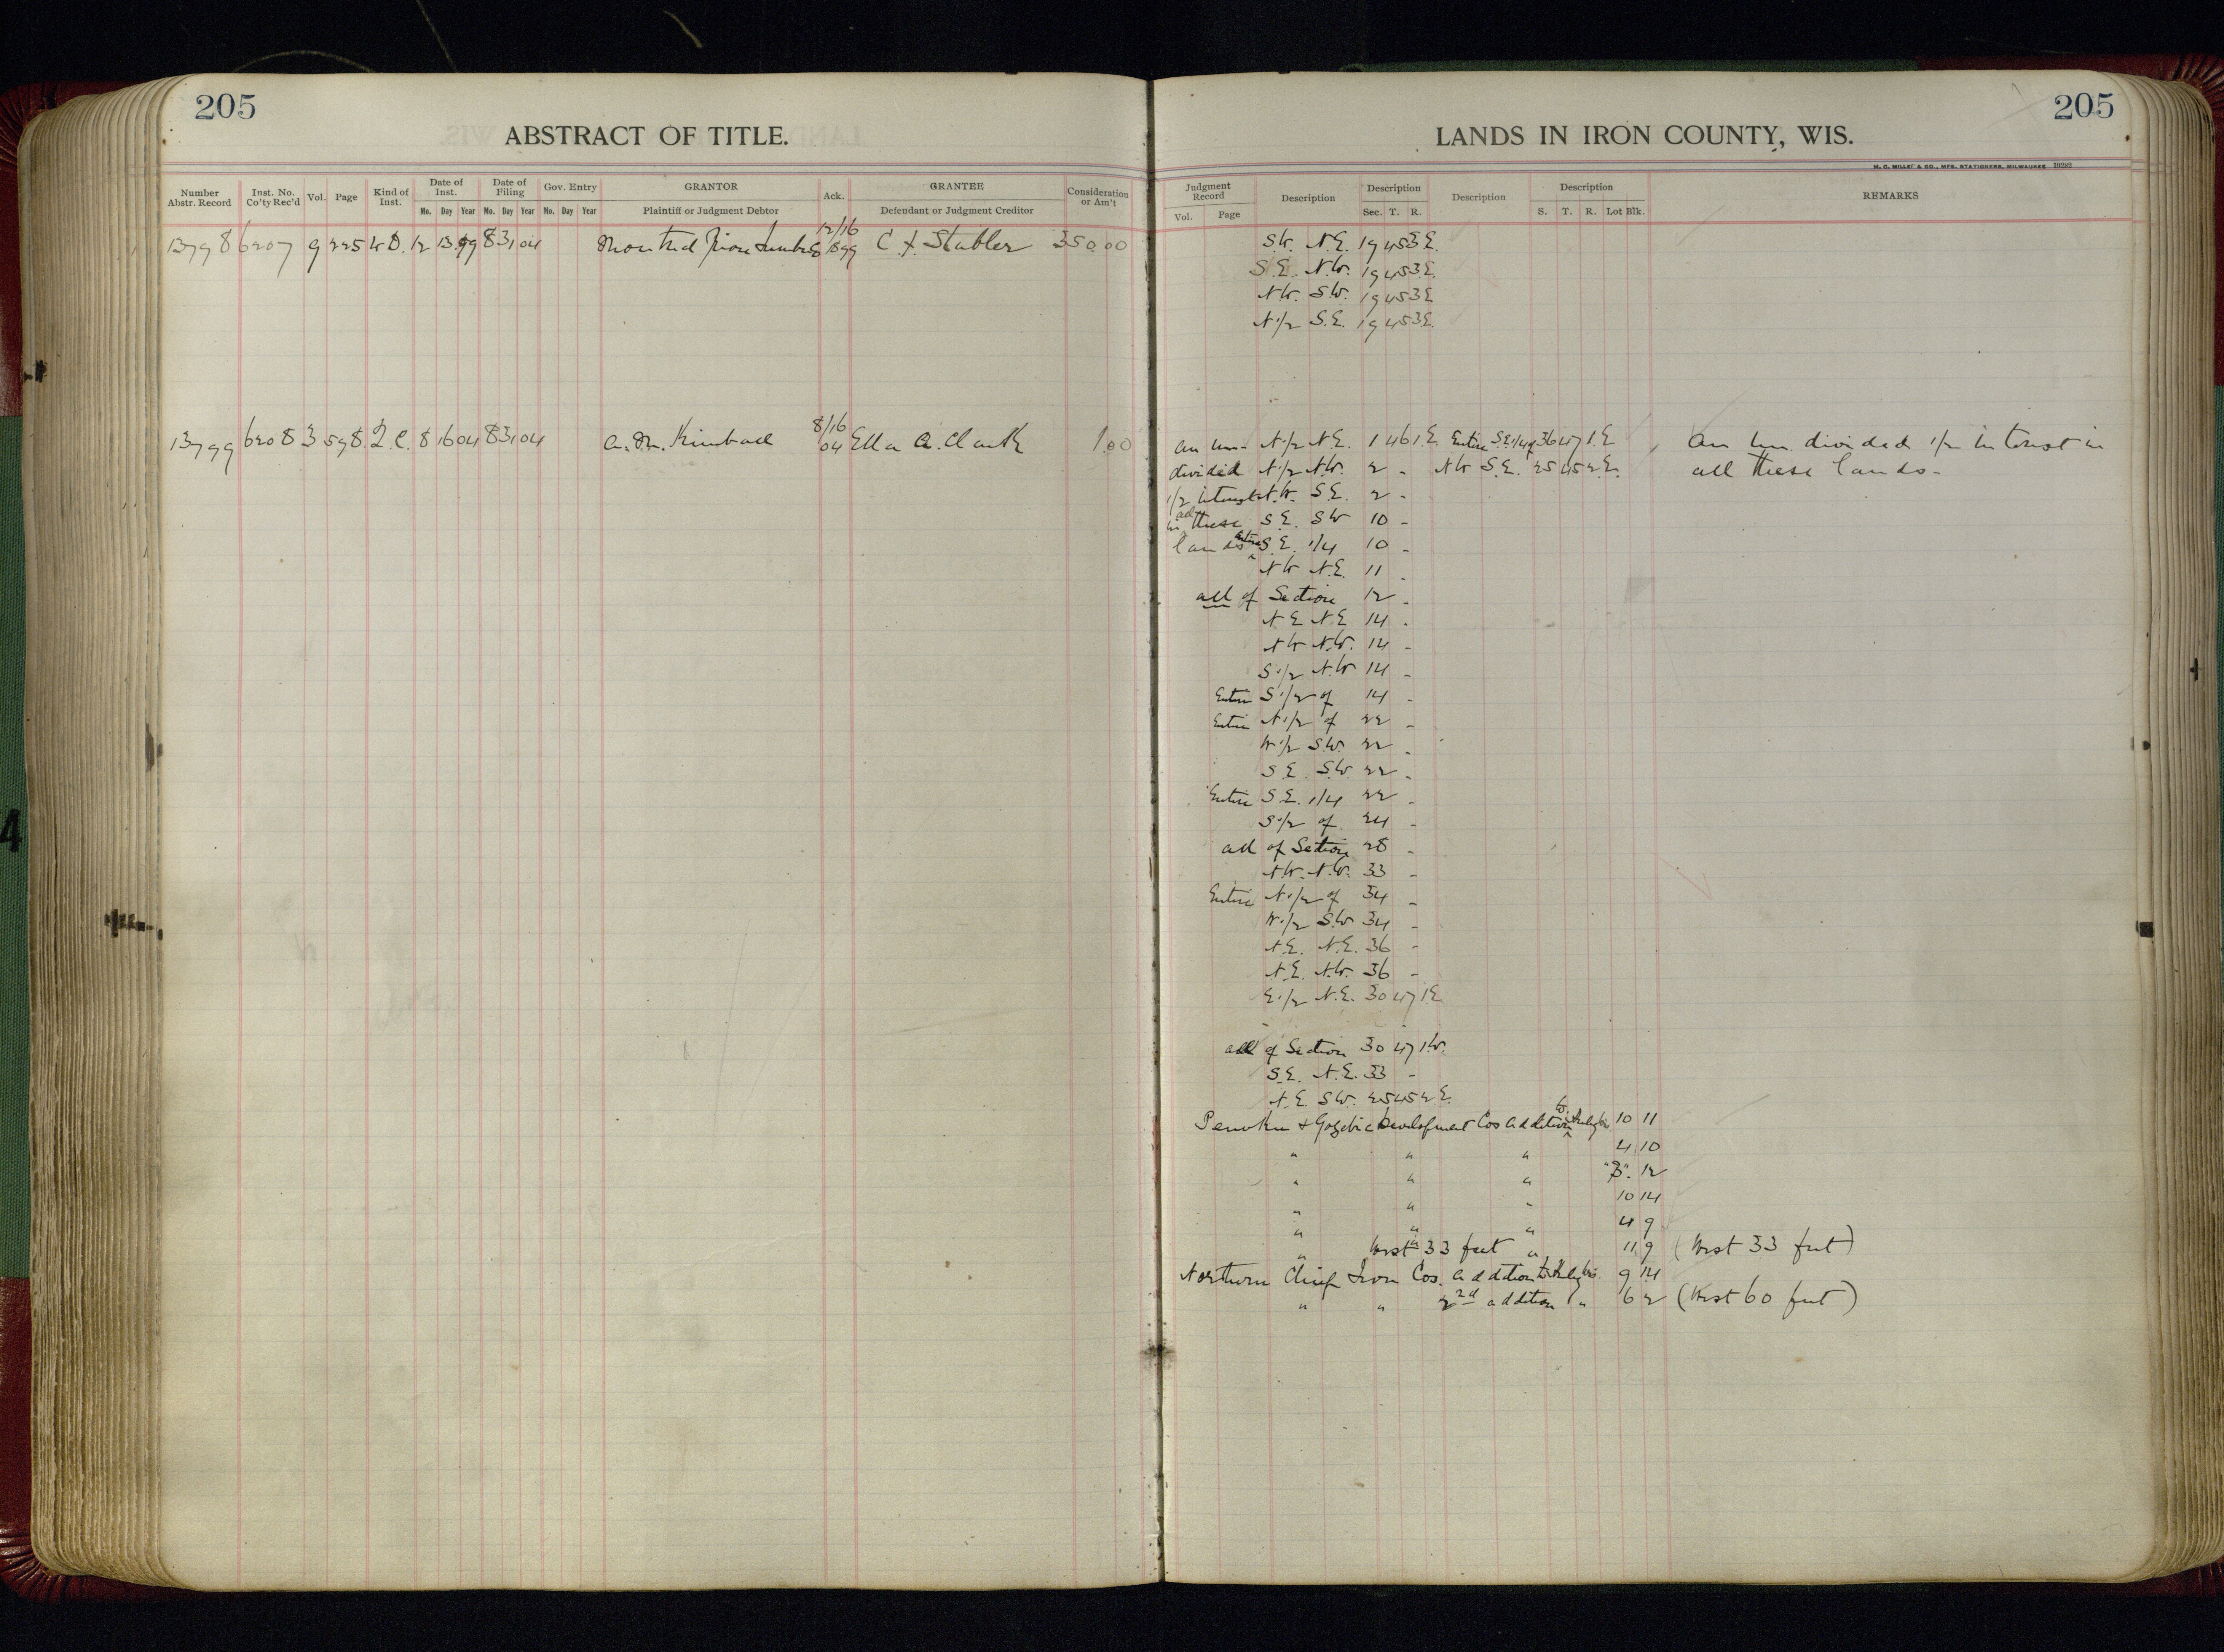 205
ABSTRACT OF TITLE.
Number Abstr. Record Inst. No. Co'ty Rec'd Vol. Page Kind of Inst. Date of Inst. Mo. Day Year Date of Filing Mo. Day Year Gov. Entry No. Day Year GRANTOR Plaintiff or Judgment Debtor Ack. GRANTEE Defendant or Judgment Creditor Consideration or Am't
12/16
13798 6207 9 225 W.D. 12 13 99 8 31 04 Montreal River Lumber Co 1899 C. F. Stabler 350.00
8/16
13799 6208 3 598 Q.C. 8 16 04 8 31 04 A. M. Kimball 04 Ella A. Clark 1.00
205
LANDS IN IRON COUNTY, WIS.
M. C. MILLET & CO., MFG. STATIONERS, MILWAUKEE 19292
Judgment Record Vol. Page Description Description Sec. T. R. Description Description S. T. R. Lot Blk. REMARKS
S.W. N.E. 19 45 3 E.
S.E. N.W. 19 45 3 E.
N.W. S.W. 19 45 3 E
N 1/2 S.E. 19 45 3 E.
An un- N 1/2 N.E. 1 46 1 E Entire S.E 1/4 of 36 47 1 E An un divided 1/2 interest in
divided N 1/2 N.W. 2 - N W S.E. 25 45 2 E. all these lands -
1/2 interest N.W. S.E. 2 -
in all these S.E. S W 10 -
lands Entire S.E. 1/4 10 -
N W N.E. 11 -
all of Section 12 -
N E N E 14 -
N W N.W. 14 -
S 1/2 N.W 14 -
Entire S 1/2 of 14 -
Entire N 1/2 of 22 -
W 1/2 S.W. 22 -
S.E. S.W. 22 -
Entire S.E. 1/4 22 -
S 1/2 of 24 -
all of Section 28 -
N.W. N.W. 33 -
Entire N 1/2 of 34 -
W 1/2 S.W 34 -
N.E. N.E. 36 -
N.E. N.W. 36 -
E 1/2 N.E. 30 47 1 E
all of Section 30 47 1 W.
S.E. N.E. 33 -
N.E. S.W. 25 45 2 E.
Penokee & Gogebic Development Cos addition to Hurley Wis. 10 11
" " " 4 10
" " " "B". 12
" " " 10 14
" " " 4 9
" West 33 feet " 11 9 (West 33 feet)
Northern Chief Iron Cos. addition to Hurley Wis. 9 14
" " 2nd addition " 6 2 (West 60 feet)